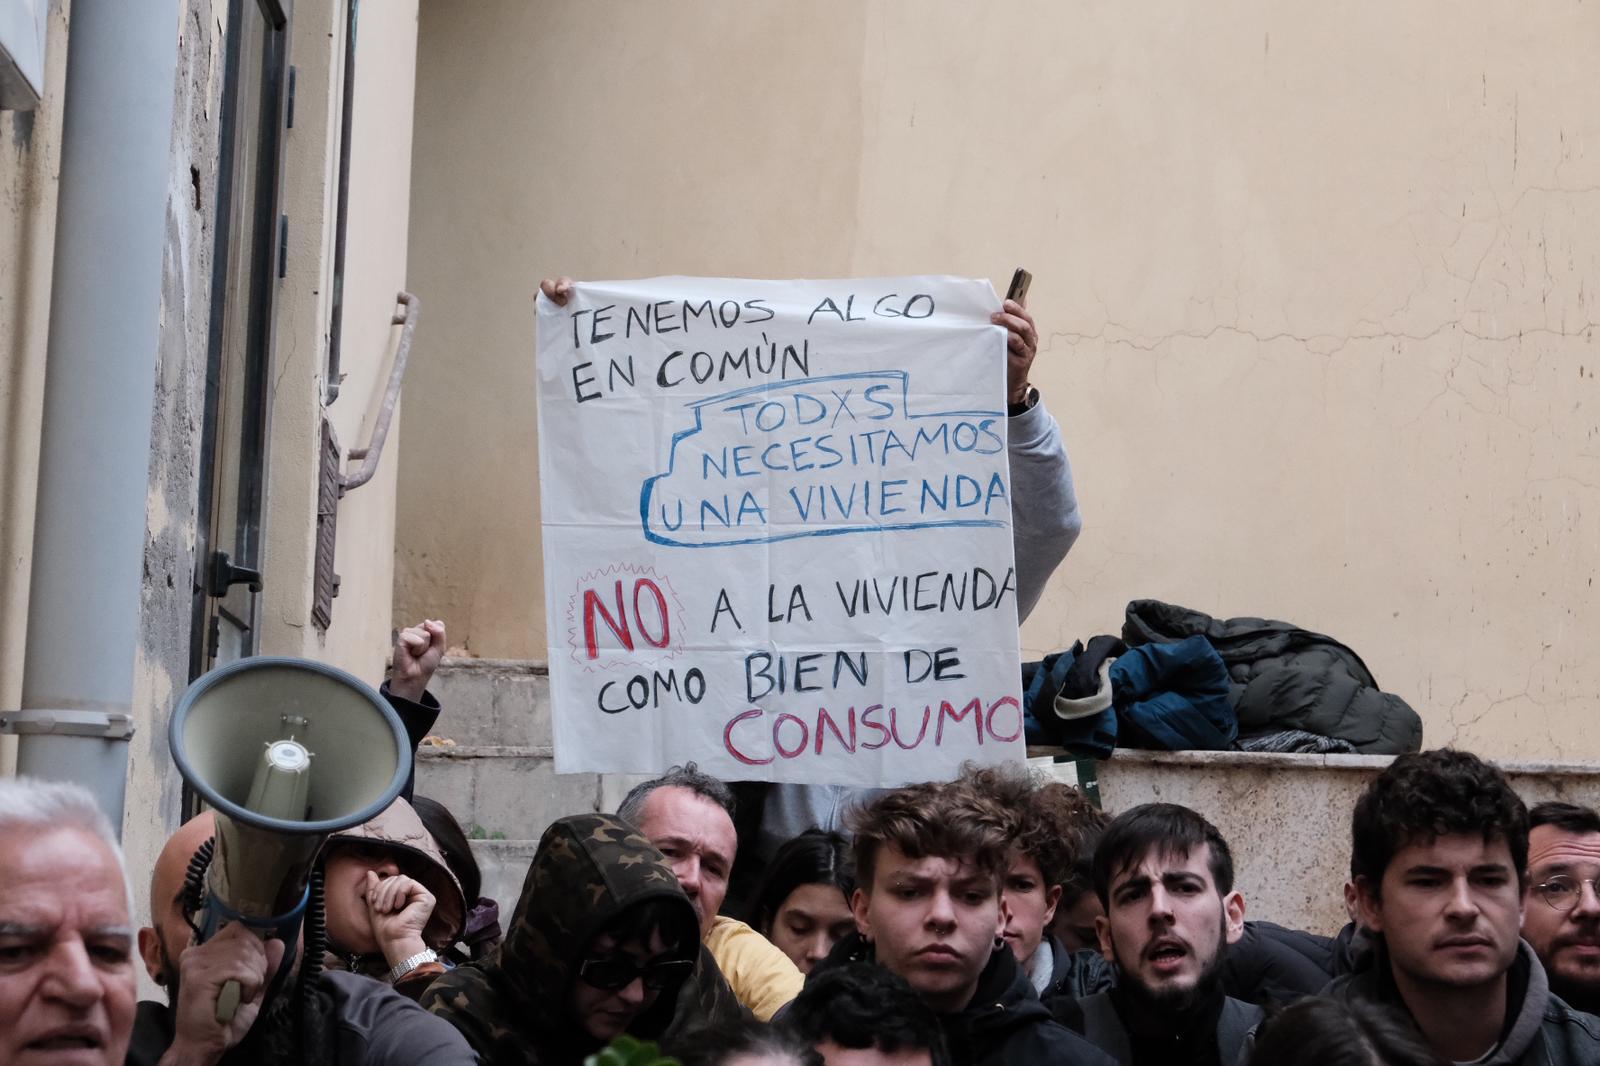 TENEMOS ALGO
EN COMÚN
TODXS
NECESITAMOS
UNA VIVIENDA
NO A LA VIVIENDA
COMO BIEN DE
CONSUMO